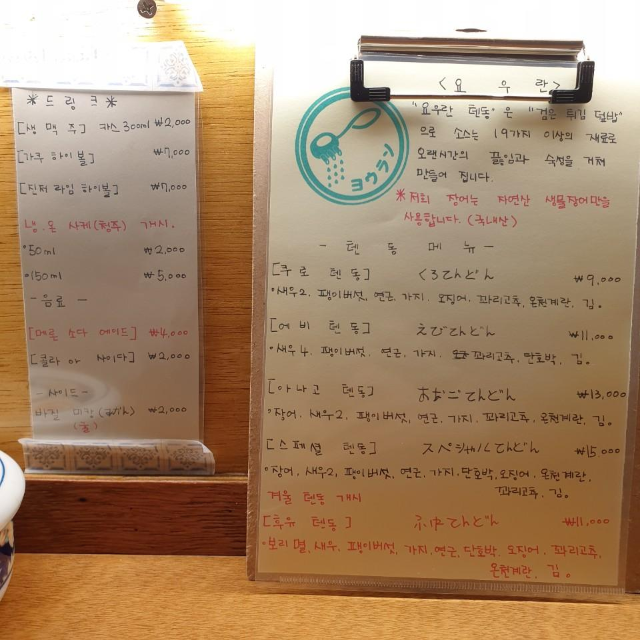 *드링크*
[생맥주] 카스 300ml ₩2,000
[가쿠 하이볼] ₩7,000
[진저 라임 하이볼] ₩7,000
냉.온 사케(청주) 개시.
50ml ₩2,000
150ml ₩5,000
-음료-
[메론 소다 에이드] ₩4,000
[콜라 or 사이다] ₩2,000
-사이드-
바질 (국카ㅅ) ₩2,000
<요우란>
ヨウラン
"요우란 텐동"은 "검은 튀김 덮밥"
으로 소스는 19가지 이상의 재료로
오랜시간의 끓임과 숙성을 거쳐
만들어 집니다.
*저희 장어는 자연산 생물장어만을
사용합니다.(국내산)
-텐동메뉴-
[쿠로 텐동] くろてんどん ₩9,000
•새우2, 팽이버섯, 연근, 가지, 오징어, 꽈리고추, 온천계란, 김。
[에비 텐동] えびてんどん ₩11,000
•새우4, 팽이버섯, 연근, 가지, 꽈리고추, 단호박, 김。
[아나고 텐동] あなごてんどん ₩13,000
•장어, 새우2, 팽이버섯, 연근, 가지, 꽈리고추, 온천계란, 김。
[스페셜 텐동] スペシャルてんどん ₩15,000
•장어, 새우2, 팽이버섯, 연근, 가지, 단호박, 오징어, 온천계란,
꽈리고추, 김。
겨울 텐동 개시
[후유 텐동] ふゆてんどん ₩11,000
•보리멸, 새우, 팽이버섯, 가지, 연근, 단호박, 오징어, 꽈리고추,
온천계란, 김。